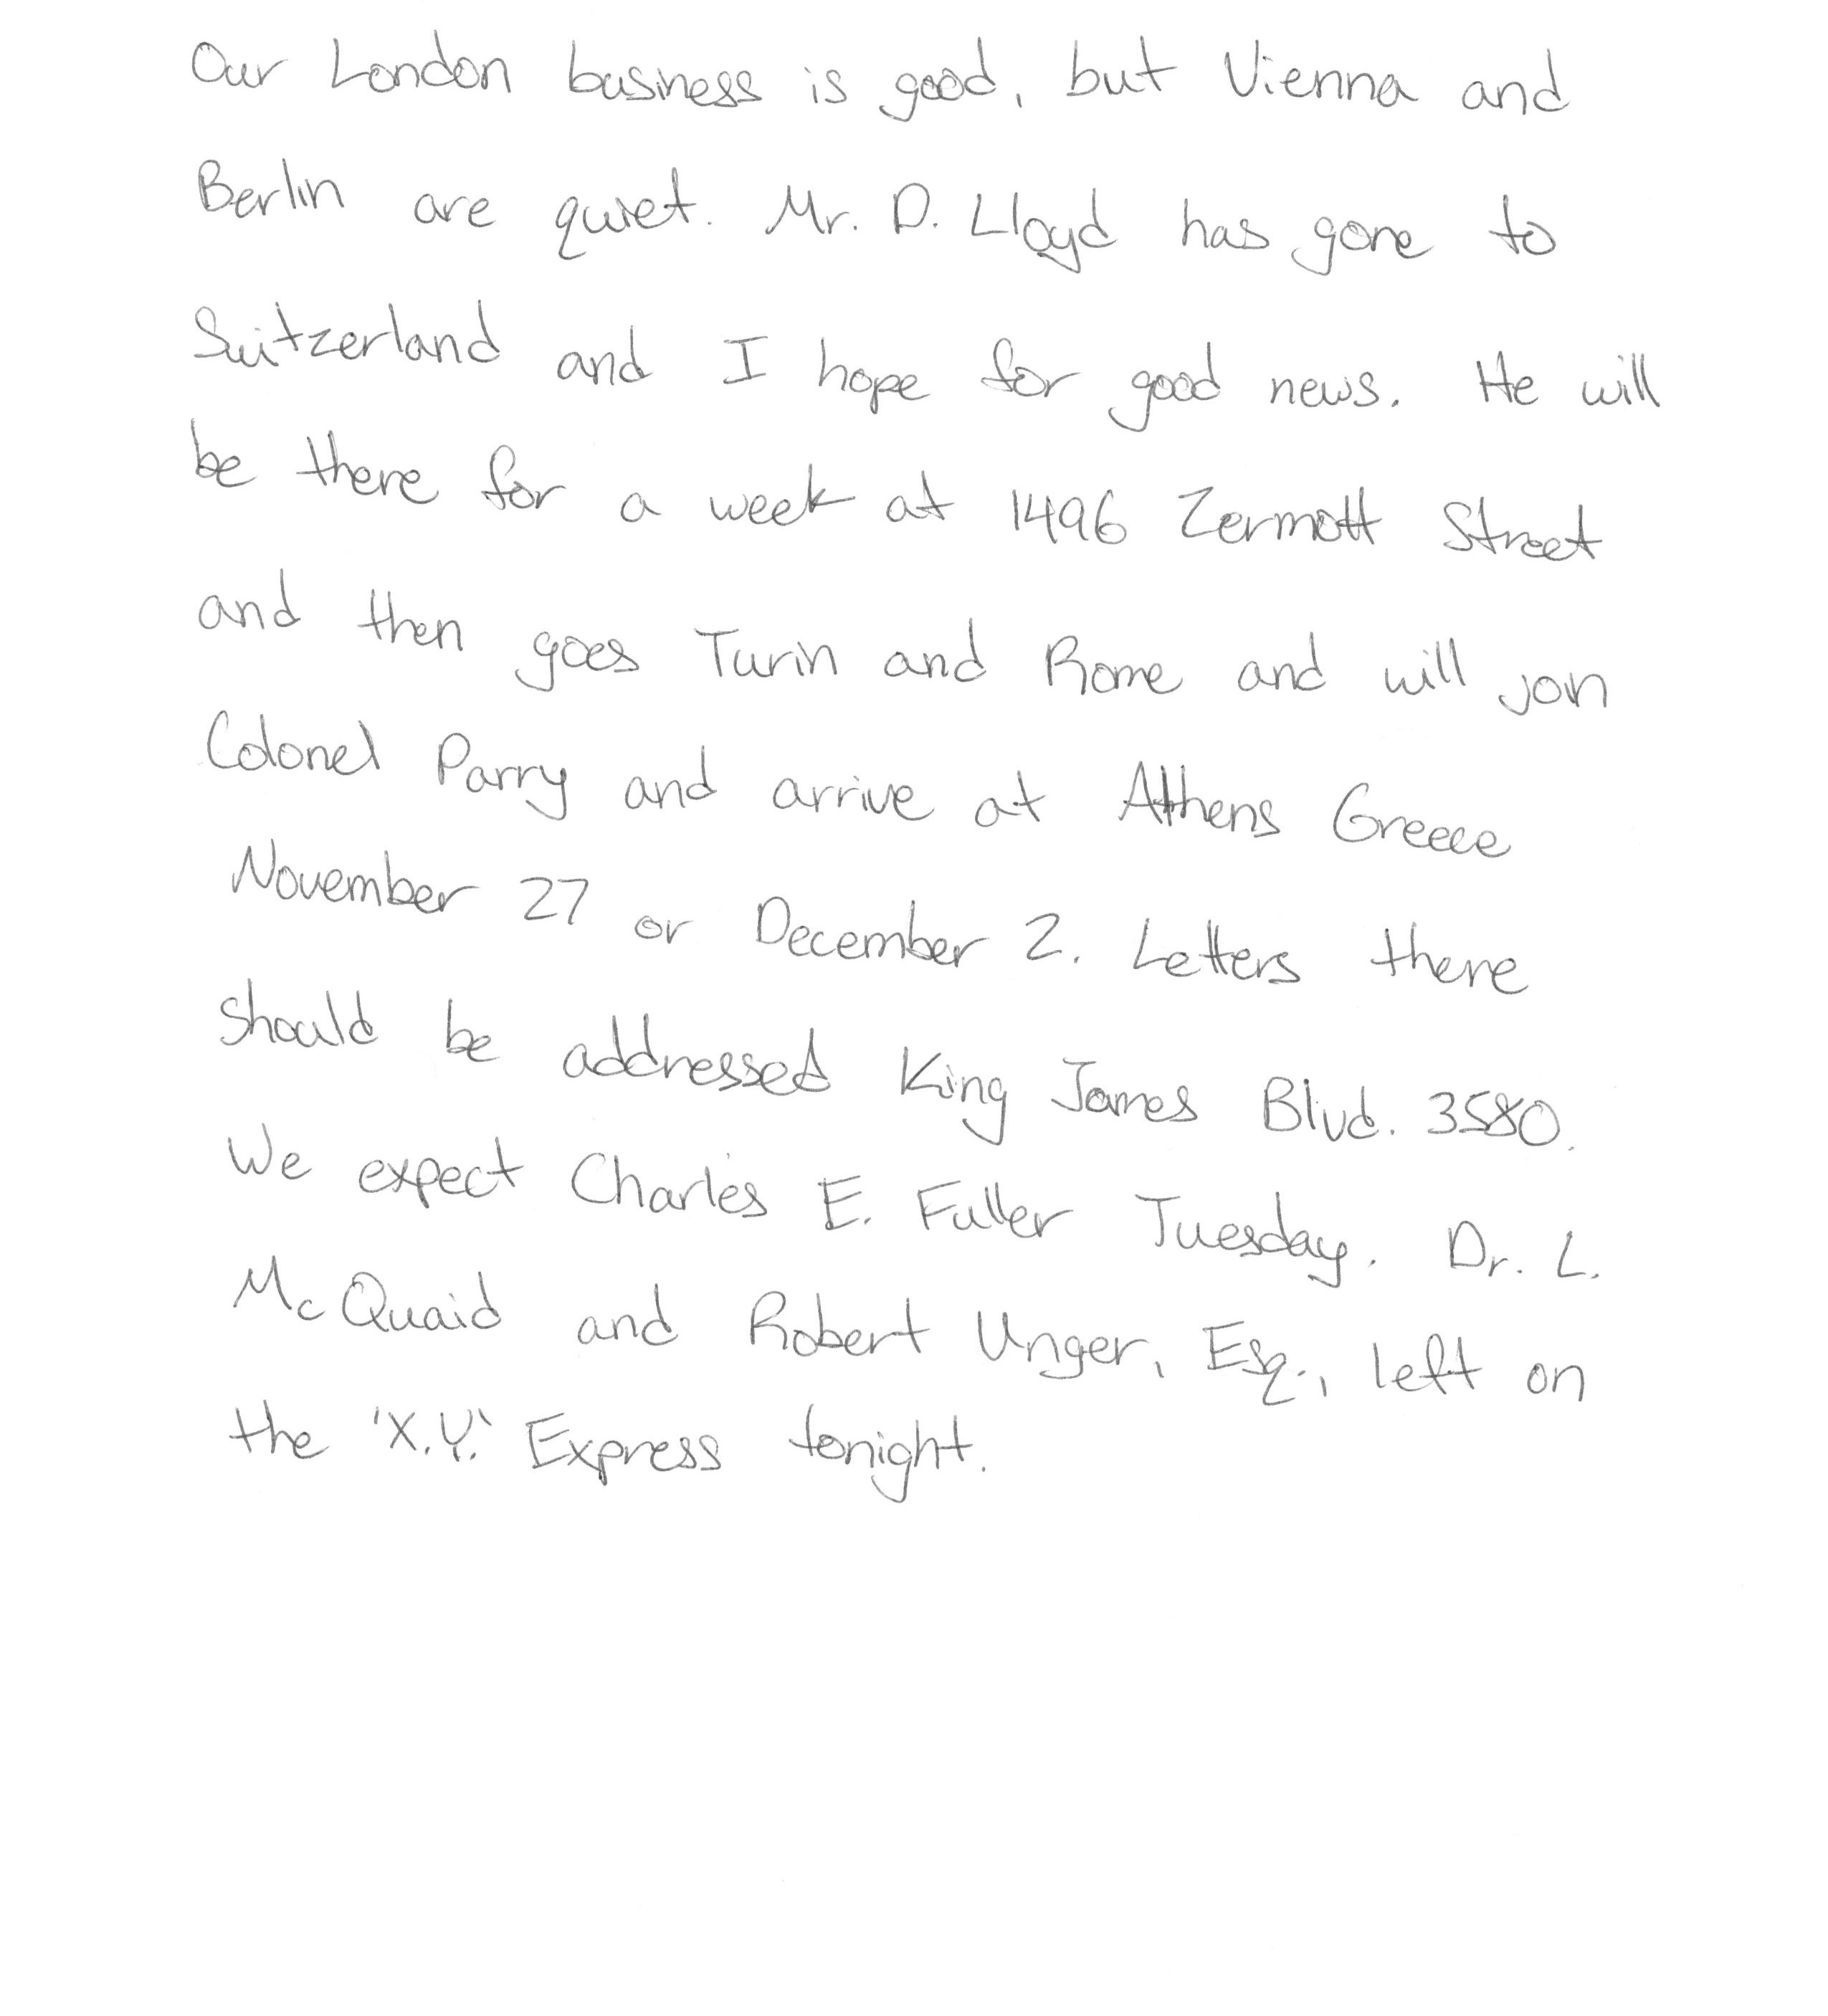 Our London business is good, but Vienna and
Berlin are quiet. Mr. D. Lloyd has gone to
Switzerland and I hope for good news. He will
be there for a week at 1496 Zermott Street
and then goes Turin and Rome and will join
Colonel Parry and arrive at Athens Greece
November 27 or December 2. Letters there
should be addressed King James Blvd. 3580.
We expect Charles E. Fuller Tuesday. Dr. L.
McQuaid and Robert Unger, Esq., left on
the 'X.Y.' Express tonight.